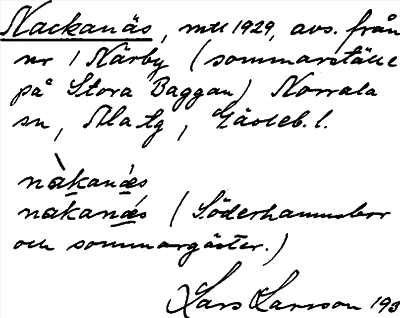 Nackanäs, mtl 1929, avs. från
nr 1 Närby (sommarställe
på Stora Baggan) Norrala
sn, Ala tg, Gävleb. l.
nàkanǽs
nakanǽs (Söderhamnsbor
och sommargäster.)
Lars Larsson 193